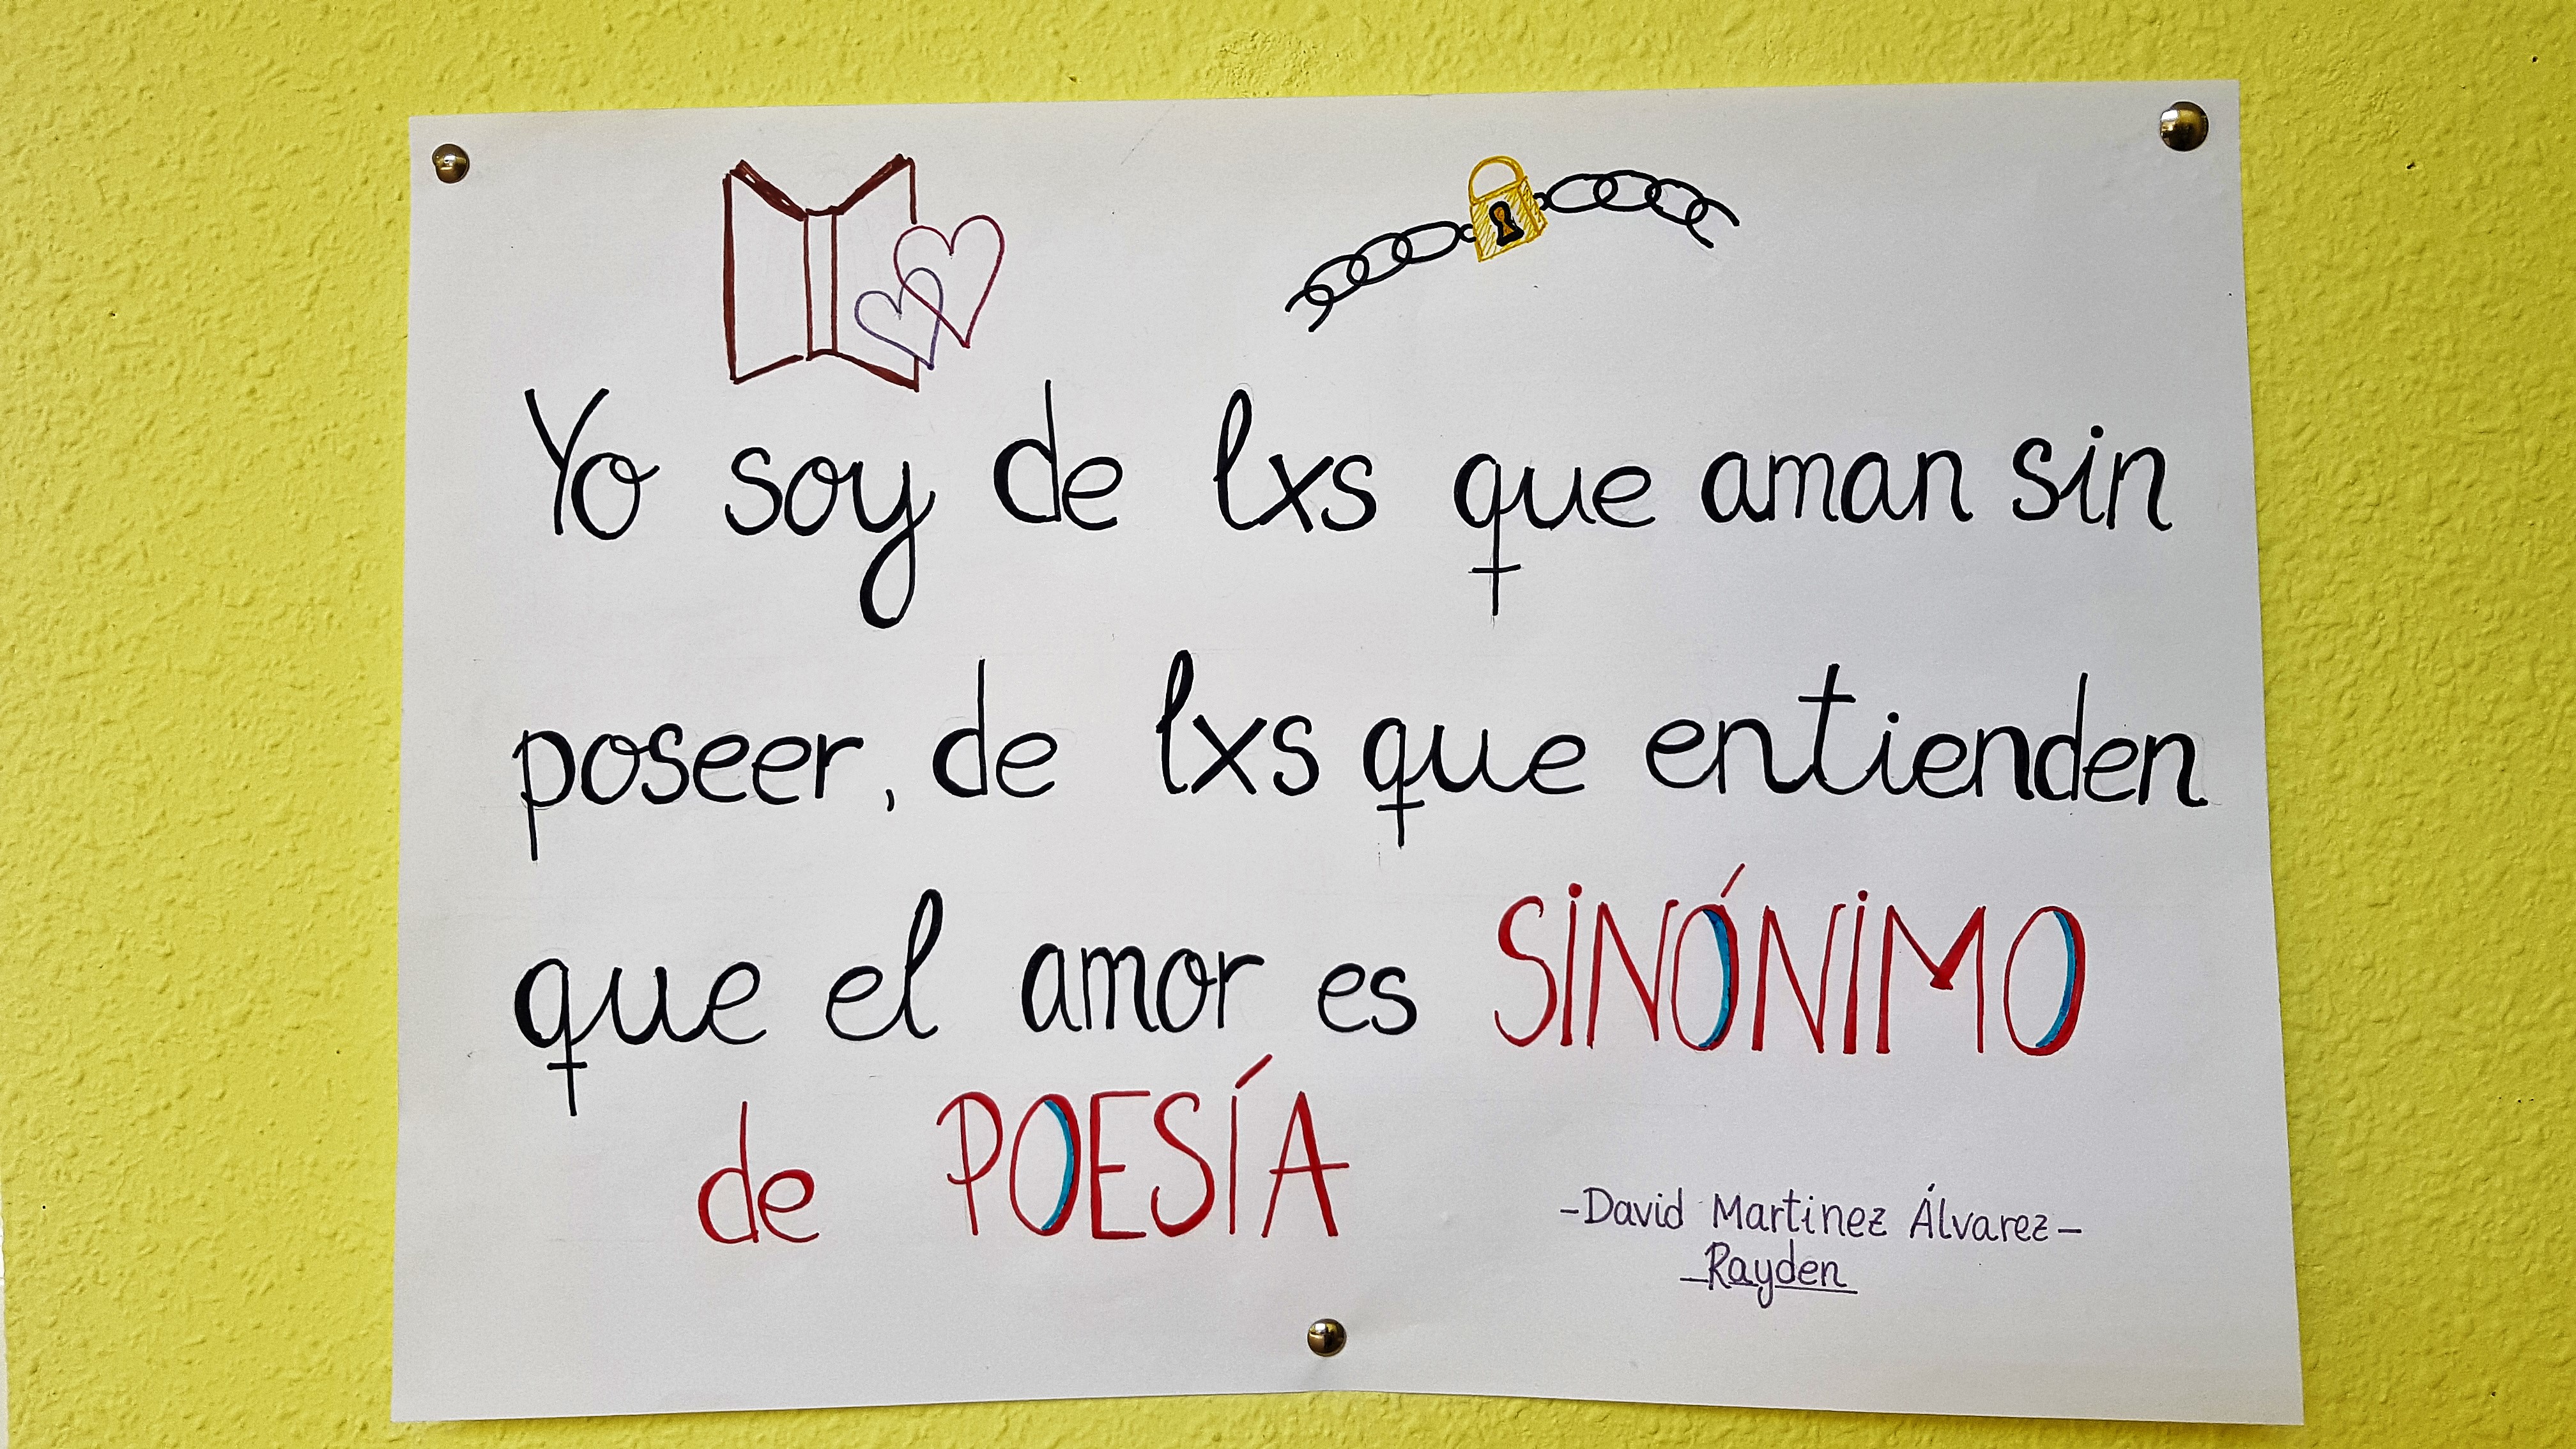 Yo soy de lxs que aman sin
poseer, de lxs que entienden
que el amor es SINÓNIMO
de POESÍA
-David Martinez Álvarez-
Rayden